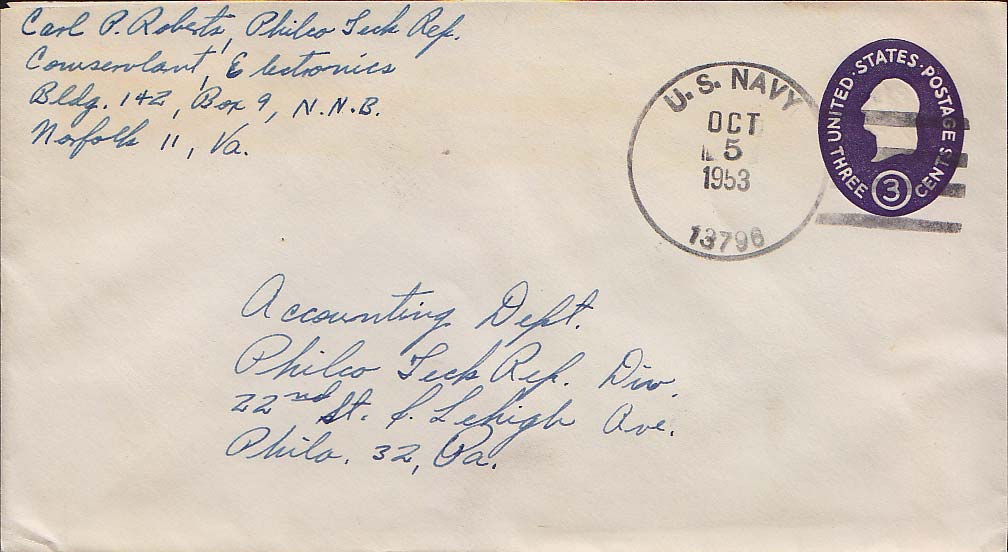 Carl P. Roberts, Philco Tech Rep.
Comservlant, Electronics
Bldg. 142, Box 9, N.N.B.
Norfolk 11, Va.
U.S. NAVY
OCT
5
1953
13796
UNITED · STATES · POSTAGE
THREE 3 CENTS
Accounting Dept.
Philco Tech Rep. Div.
22nd St. & Lehigh Ave.
Phila. 32, Pa.